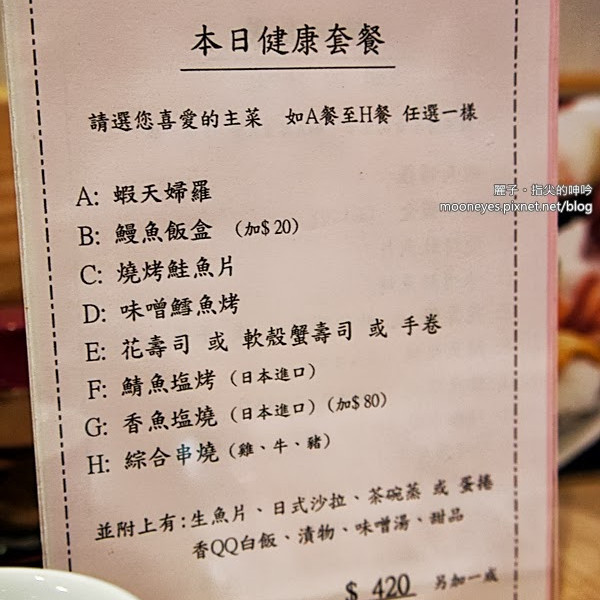 本日健康套餐
請選您喜愛的主菜 如A餐至H餐 任選一樣
麗子‧指尖的呻吟
mooneyes.pixnet.net/blog
A: 蝦天婦羅
B: 鰻魚飯盒 (加$20)
C: 燒烤鮭魚片
D: 味噌鱈魚烤
E: 花壽司 或 軟殼蟹壽司 或 手卷
F: 鯖魚塩烤 (日本進口)
G: 香魚塩燒 (日本進口) (加$80)
H: 綜合串燒 (雞、牛、豬)
並附上有:生魚片、日式沙拉、茶碗蒸 或 蛋捲
香QQ白飯、漬物、味噌湯、甜品
$ 420 另加一成